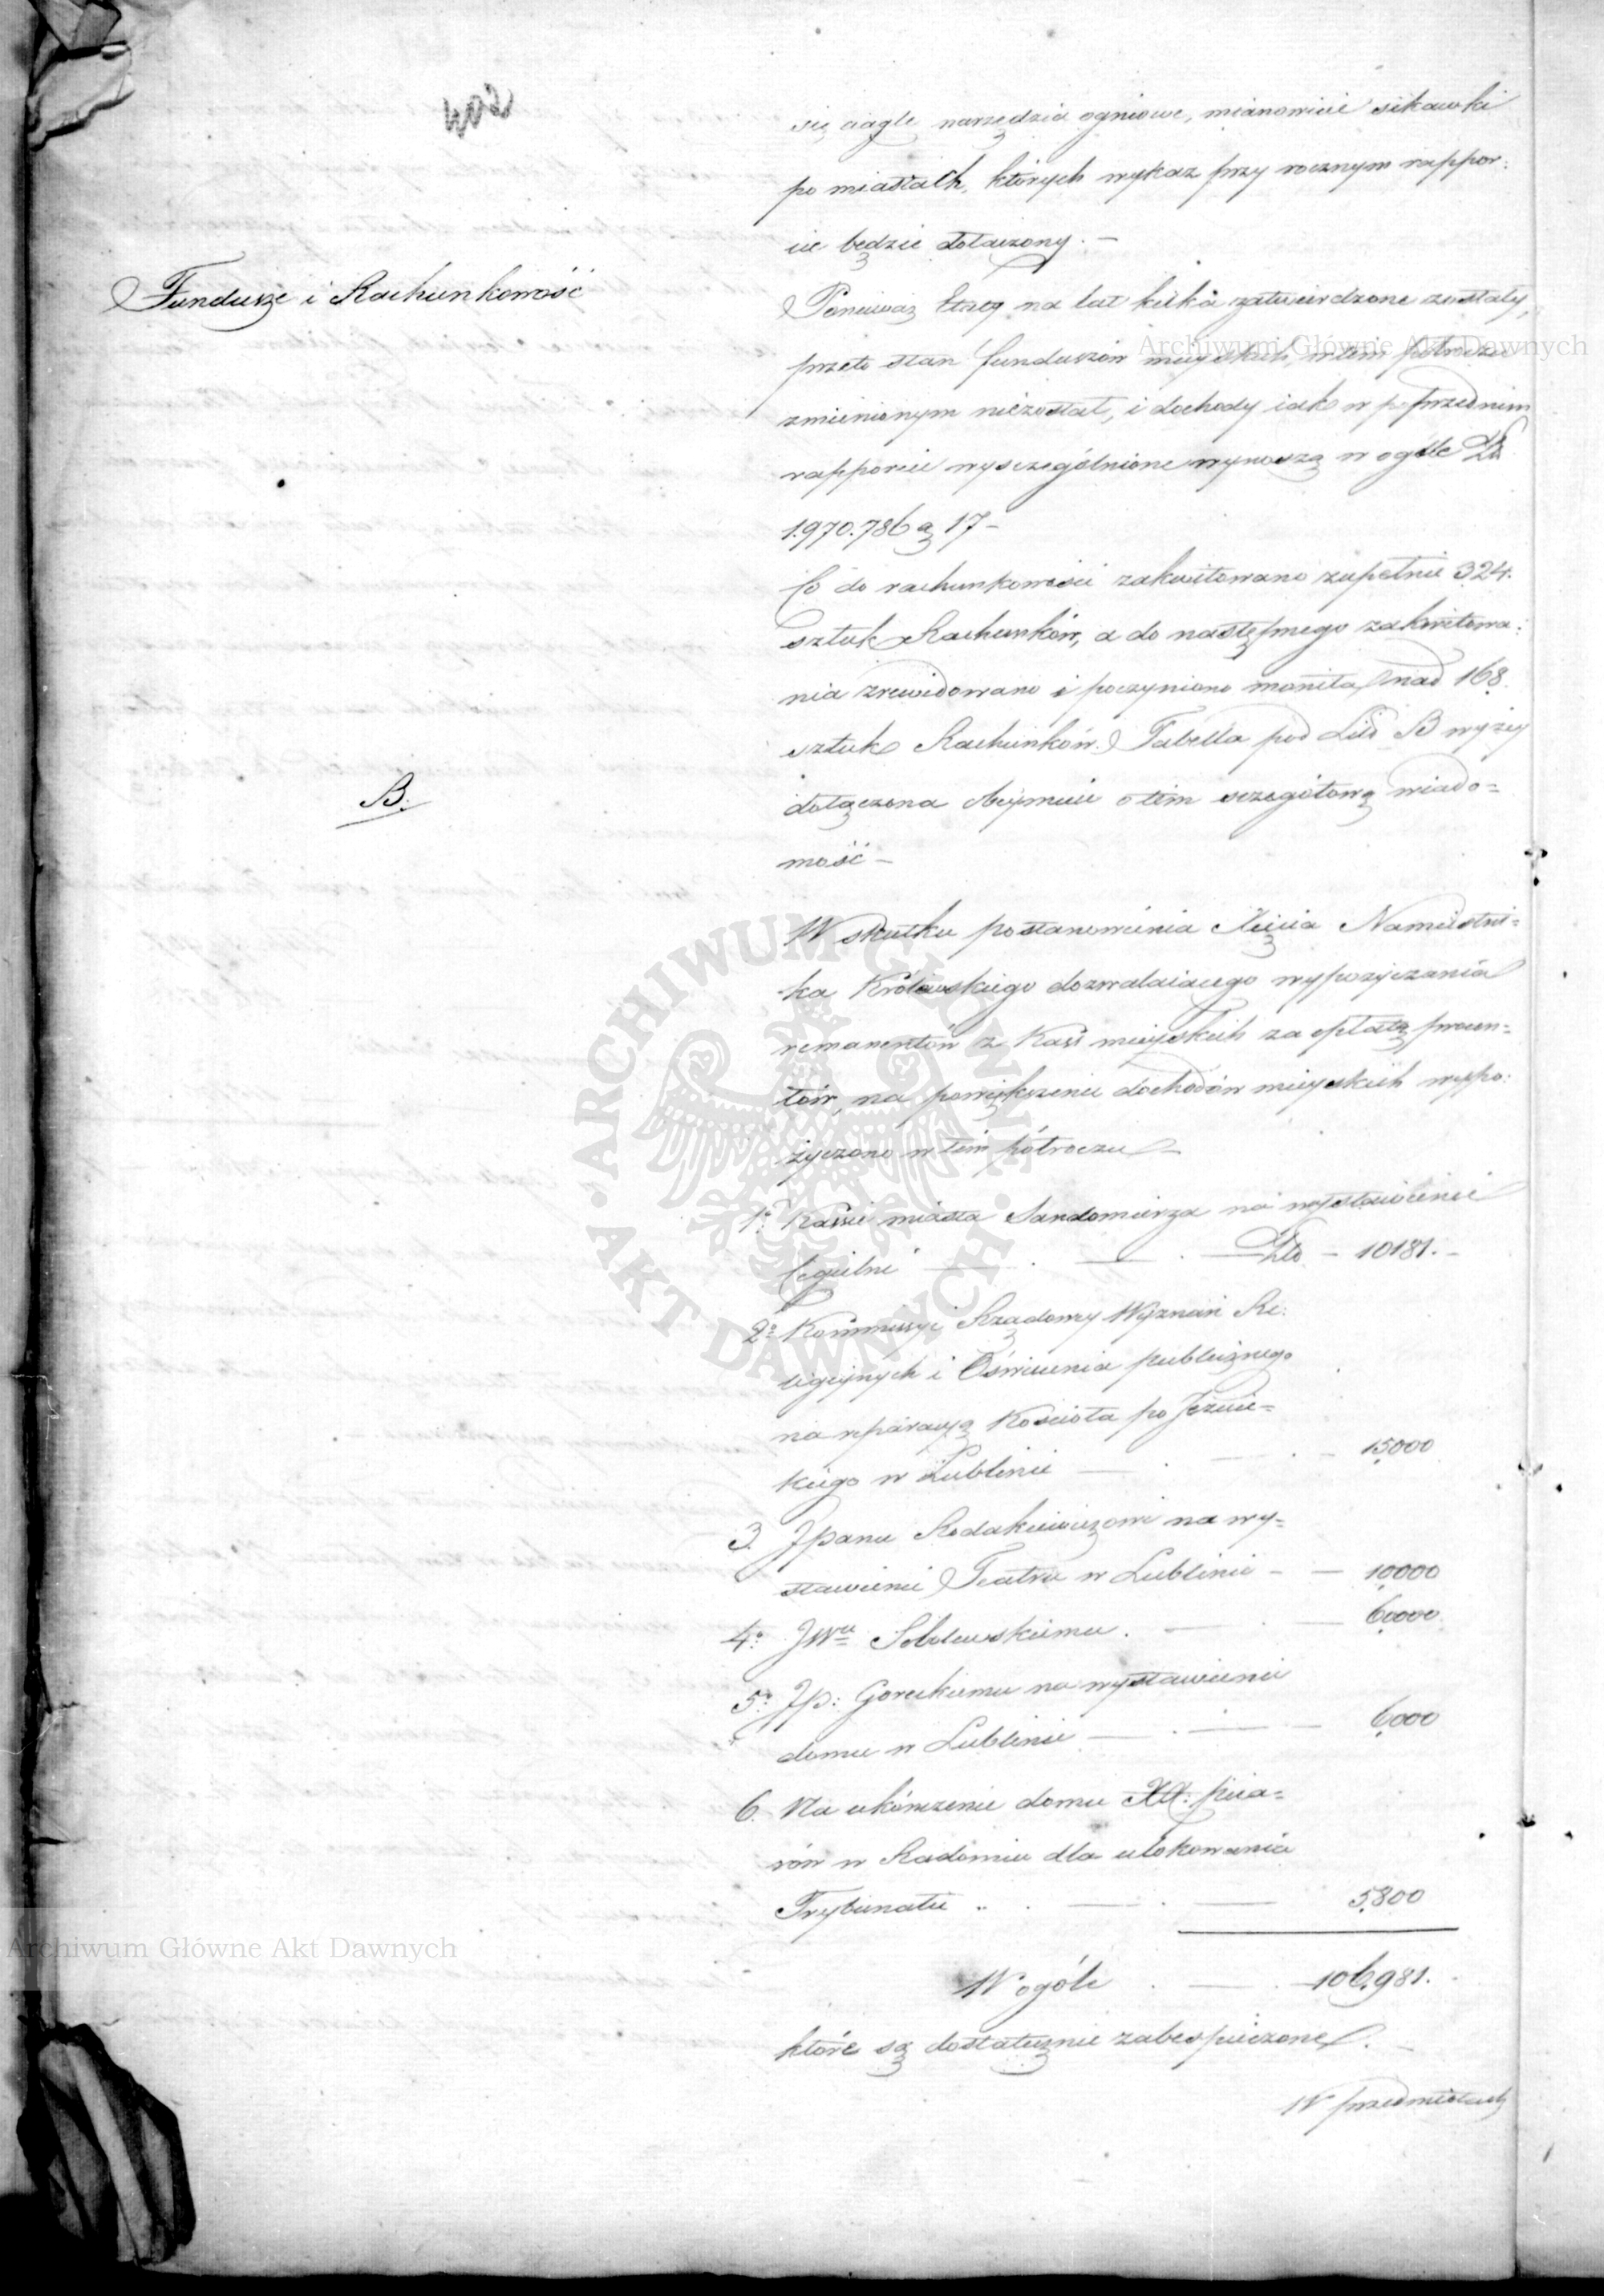 się ciągle narzędzia ogniowe, mianowicie sikawki
po miastach, których wykaz przy rocznym rappor:
cie będzie dołączony. –
Fundusze i Rachunkowość
Ponieważ Etaty na lat kilka zatwierdzone zostały,
przeto stan funduszów mieyskich w tem półroczu
zmienionym niezostał, i dochody iak w poprzednim
rapporcie wyszczególnione wynoszą w ogóle Zł.
1.970.786 g 17 –
Co do rachunkowości zakwitowano zupełnie 324.
sztuk Rachunków, a do następnego zakwitowa:
nia zrewidowano i poczyniono monita nad 168.
sztuk Rachunków. Tabella pod Lit B wyżey
B.
dołączona obeymuie o tem szczegółową wiado=
mość –
W skutku postanowienia Xięcia Namiestni=
ka Królewskiego dozwalaiącego wypożyczania
remanentów z Kass mieyskich za opłatą procen=
tów, na powiększenie dochodów mieyskich wypo:
życzono w tem półroczu –
1º Kassie miasta Sandomierza na wystawienie
Cegielni — . — . — Złp – 10181. –
2º Kommissyi Rządowey Wyznań Re:
ligijnych i Oświecenia publicznego
na reparacyą Kościoła po Jezuic=
kiego w Lublinie — . — . – 15000
3. JPanu Rodakiewiczowi na wy=
stawienie Teatru w Lublinie – — 10000
4º JWu Sobolewskiemu . — . — 60000
5º Jp: Goreckiemu na wystawienie
domu w Lublinie — . — – 6000
6. Na ukończenie domu XX. Pija=
rów w Radomiu dla ulokowania
Trybunału .. . — . — 5800
W ogóle . — . 106,981.
które są dostatecznie zabespieczone. –
W przedmiotach
Archiwum Główne Akt Dawnych
Archiwum Główne Akt Dawnych
ARCHIWUM GŁÓWNE AKT DAWNYCH